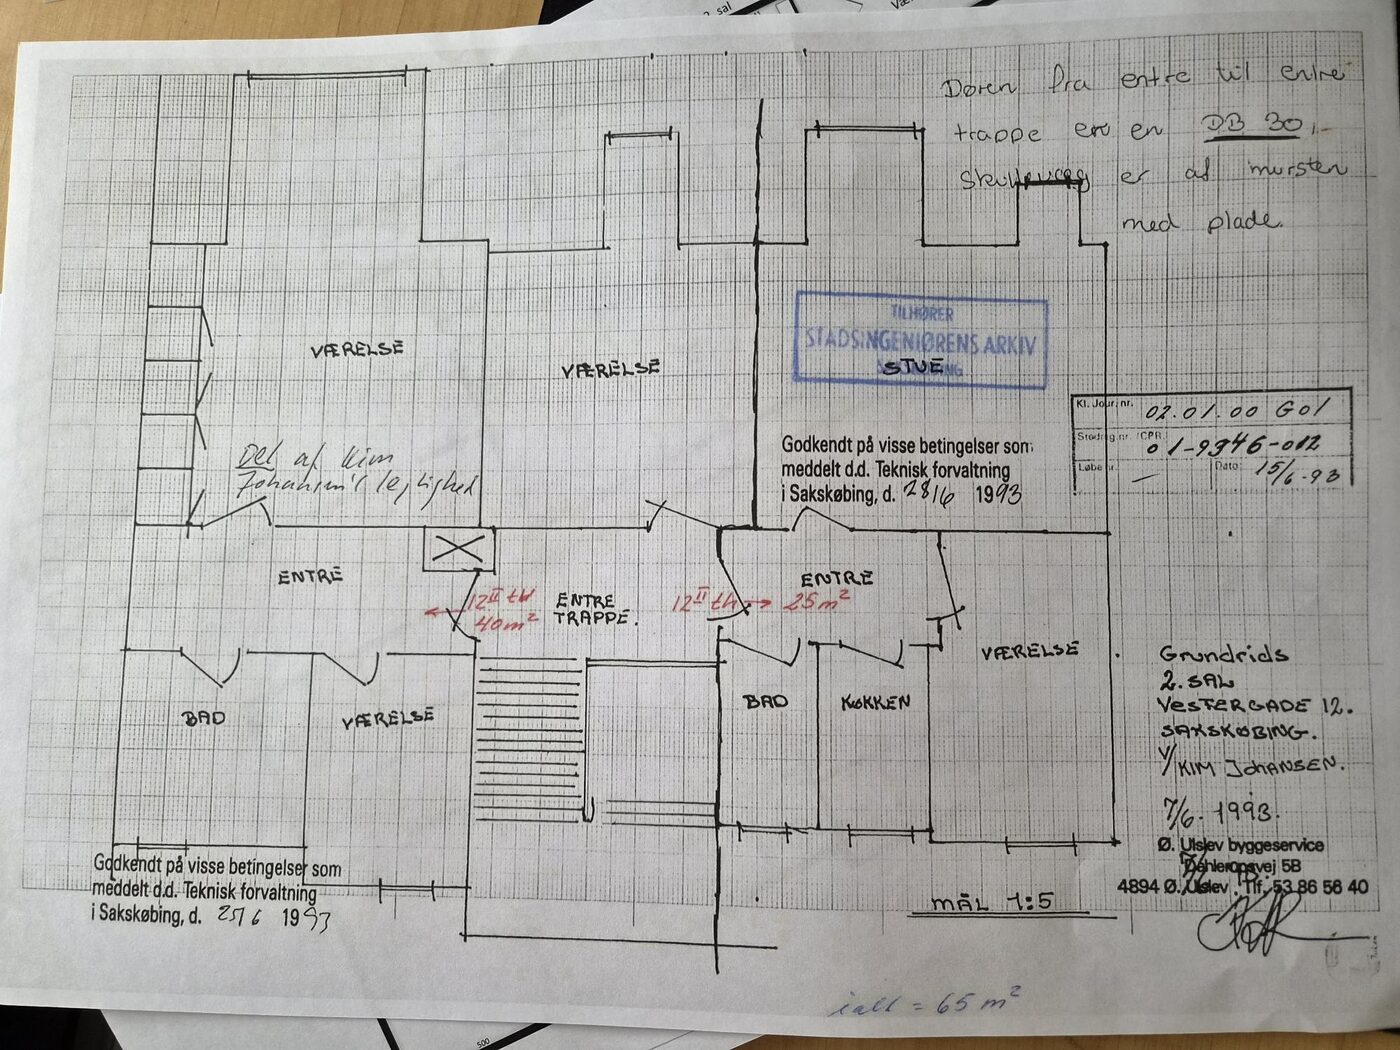 sal
Døren fra entre til entre
trappe er en DB 30,-
er af mursten
med plade.
TILHØRER
STADSINGENIØRENS ARKIV
STUE
VÆRELSE
VÆRELSE
Kl. Jour. nr. 02.01.00 G01
CPR. 01-9946-012
Løbe nr. — Dato: 15/6-93
Del af Kim
Johansen's lejlighed
Godkendt på visse betingelser som
meddelt d.d. Teknisk forvaltning
i Sakskøbing, d. 28/6 1993
ENTRE
12 II th
40 m²
ENTRE
TRAPPE.
12 II th
ENTRE
25 m²
VÆRELSE
BAD
VÆRELSE
BAD
KØKKEN
Grundrids
2. SAL
VESTERGADE 12.
SAKSKØBING.
V/KIM JOHANSEN.
7/6. 1993.
Ø. Ulslev byggeservice
5B
4894 Ø. Ulslev . Tlf. 53 86 56 40
Godkendt på visse betingelser som
meddelt d.d. Teknisk forvaltning
i Sakskøbing, d. 25/6 1993
MÅL 1:5
ialt = 65 m²
500